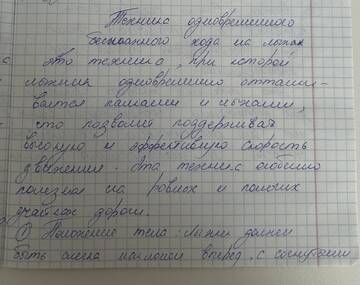 Техника одновременного
бесшажного хода на лыжах
это техника, при которой
лыжник одновременно отталки-
вается палками и лыжами,
что позволяет поддерживать
высокую и эффективную скорость
движения. Эта техника особенно
полезна на ровных и пологих
участках дороги.
① Положение тела: лыжник должен
быть слегка наклонен вперед, с согнутыми